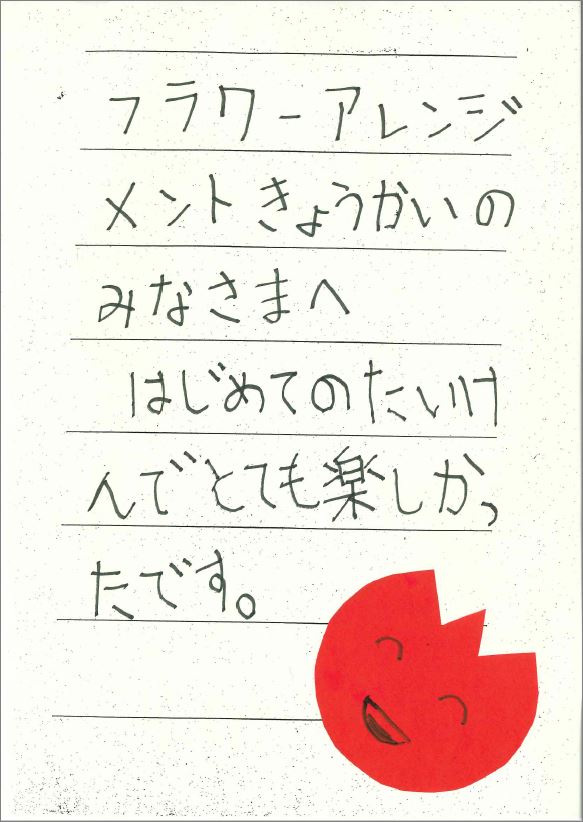 フラワーアレンジ
メントきょうかいの
みなさまへ
はじめてのたいけ
んでとても楽しかっ
たです。